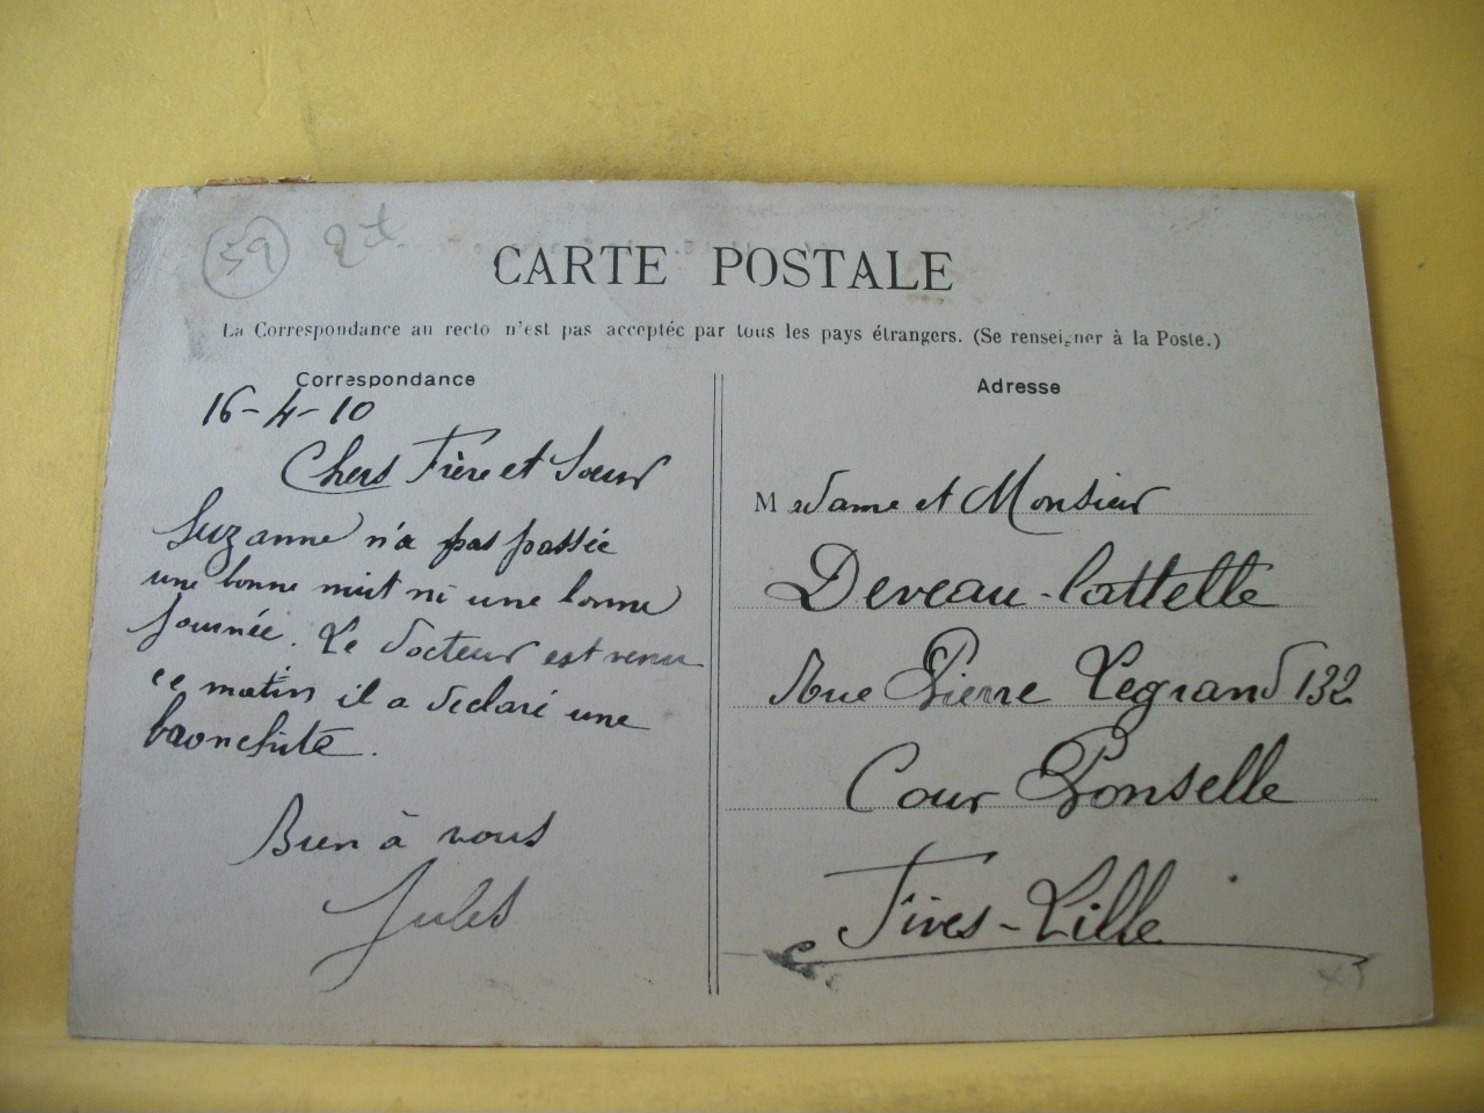 59
CARTE POSTALE
La Correspondance au recto n'est pas acceptée par tous les pays étrangers. (Se renseigner à la Poste.)
Correspondance
16-4-10
Chers Frère et Soeur
Suzanne n'a pas passée
une bonne nuit ni une bonne
journée. Le docteur est venu
ce matin il a declaré une
bronchite.
Bien à vous
Jules
Adresse
Madame et Monsieur
Deveau-Cattelle
Rue Pierre Legrand 132
Cour Ponselle
Fives-Lille